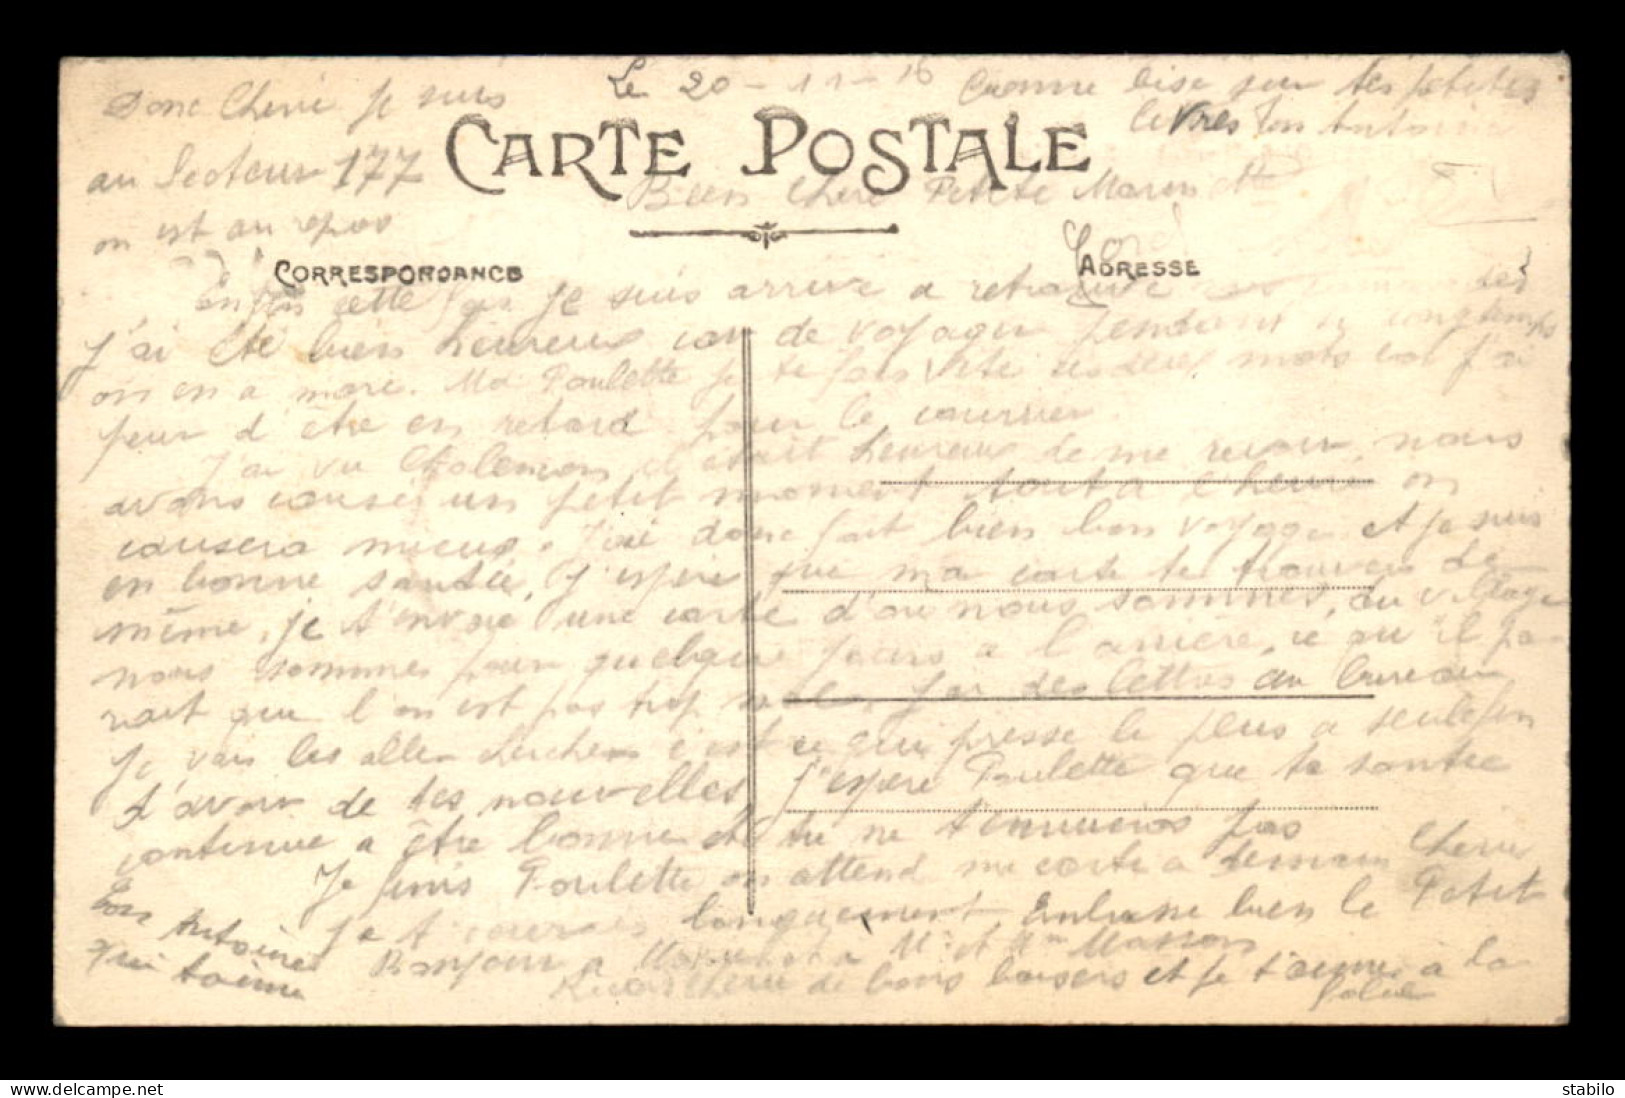 Le 20-11-16
Donc Cherie je suis
au Secteur 177
on est au repos
bonne bise sur tes petites
lèvres Ton Antoine
CARTE POSTALE
Bien Chere Petite
CORRESPONDANCE
ADRESSE
Enfin cette fois je suis arrivé a retrouvé
j'ai été bien heureux car de voyager pendant si longtemps
on en a marre. Ma Poulette je te fais vite ces deux mots car j'ai
peur d'être en retard pour le courrier
J'ai vu il était heureux de me revoir, nous
avons causé un petit moment tout a l'heure on
causera mieux. J'ai donc fait bien bon voyage et je suis
en bonne santée, j'espère que ma carte te trouvera de
même, je t'envoie une carte d'où nous sommes, du village
nous sommes pour quelque jours a l'arrière, cé qu'il pa-
rait que l'on est pas trop mal, j'ai des lettres au bureau
je vais les aller chercher c'est ce qui presse le plus a seule fin
d'avoir de tes nouvelles, j'espère Poulette que ta santée
continue a être bonne et tu ne t'ennuieras pas
Je finis Poulette on attend ma carte a demain Cherie
je t' longuement, Embrasse bien le Petit
Bonjour a a Mr et Mme Masson
Cherie de bons baisers et je t'aime a la
folie
Ton Antoine
qui t'aime
stabilo
www.delcampe.net